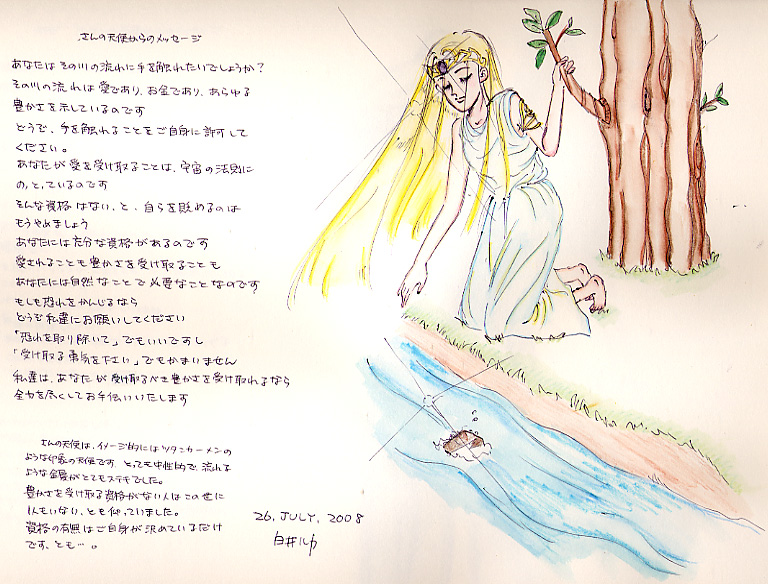 さんの天使からのメッセージ
あなたはその川の流れに手を触れたいでしょうか?
その川の流れは愛であり、お金であり、あらゆる
豊かさを示しているのです
どうぞ、手を触れることをご自身に許して
ください。
あなたが愛を受け取ることは、宇宙の法則に
のっとっているのです
そんな資格はない、と、自らを貶めるのは
もうやめましょう
あなたには充分な資格があるのです
愛されることも豊かさを受け取ることも
あなたには自然なことで必要なことなのです
もしも恐れをかんじるなら
どうぞ私達にお願いしてください
「恐れを取り除いて」でもいいですし
「受け取る勇気を下さい」でもかまいません
私達は、あなたが受け取るべき豊かさを受け取れるなら
全力を尽くしてお手伝いいたします
さんの天使は、イメージ的にはツタンカーメンの
ような印象の天使です。とっても中性的で、流れる
ような金髪がとてもステキでした。
豊かさを受け取る資格がない人はこの世に
1人もいない、とも仰っていました。
資格の有無はご自身が決めているだけ
です、とも…。
26, JULY, 2008
白井ルカ